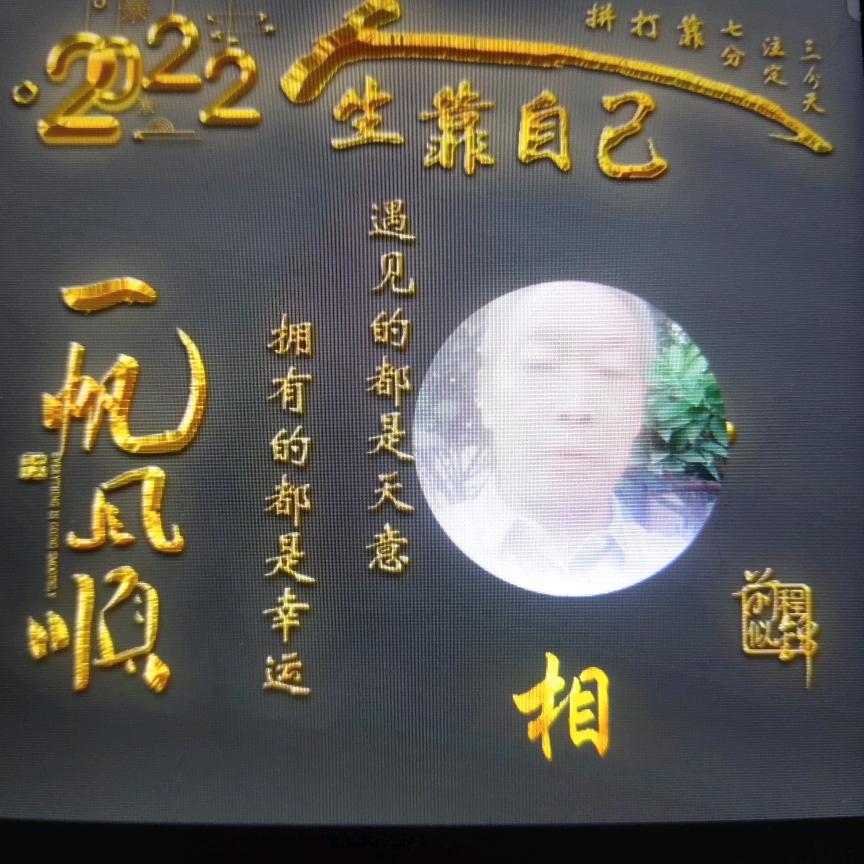 2022
人
生靠自己
三分天
注定
七分
靠
打
拼
遇见的都是天意
拥有的都是幸运
一帆风顺
EVERYTHING IS GOING SMOOTHLY
前程似锦
相